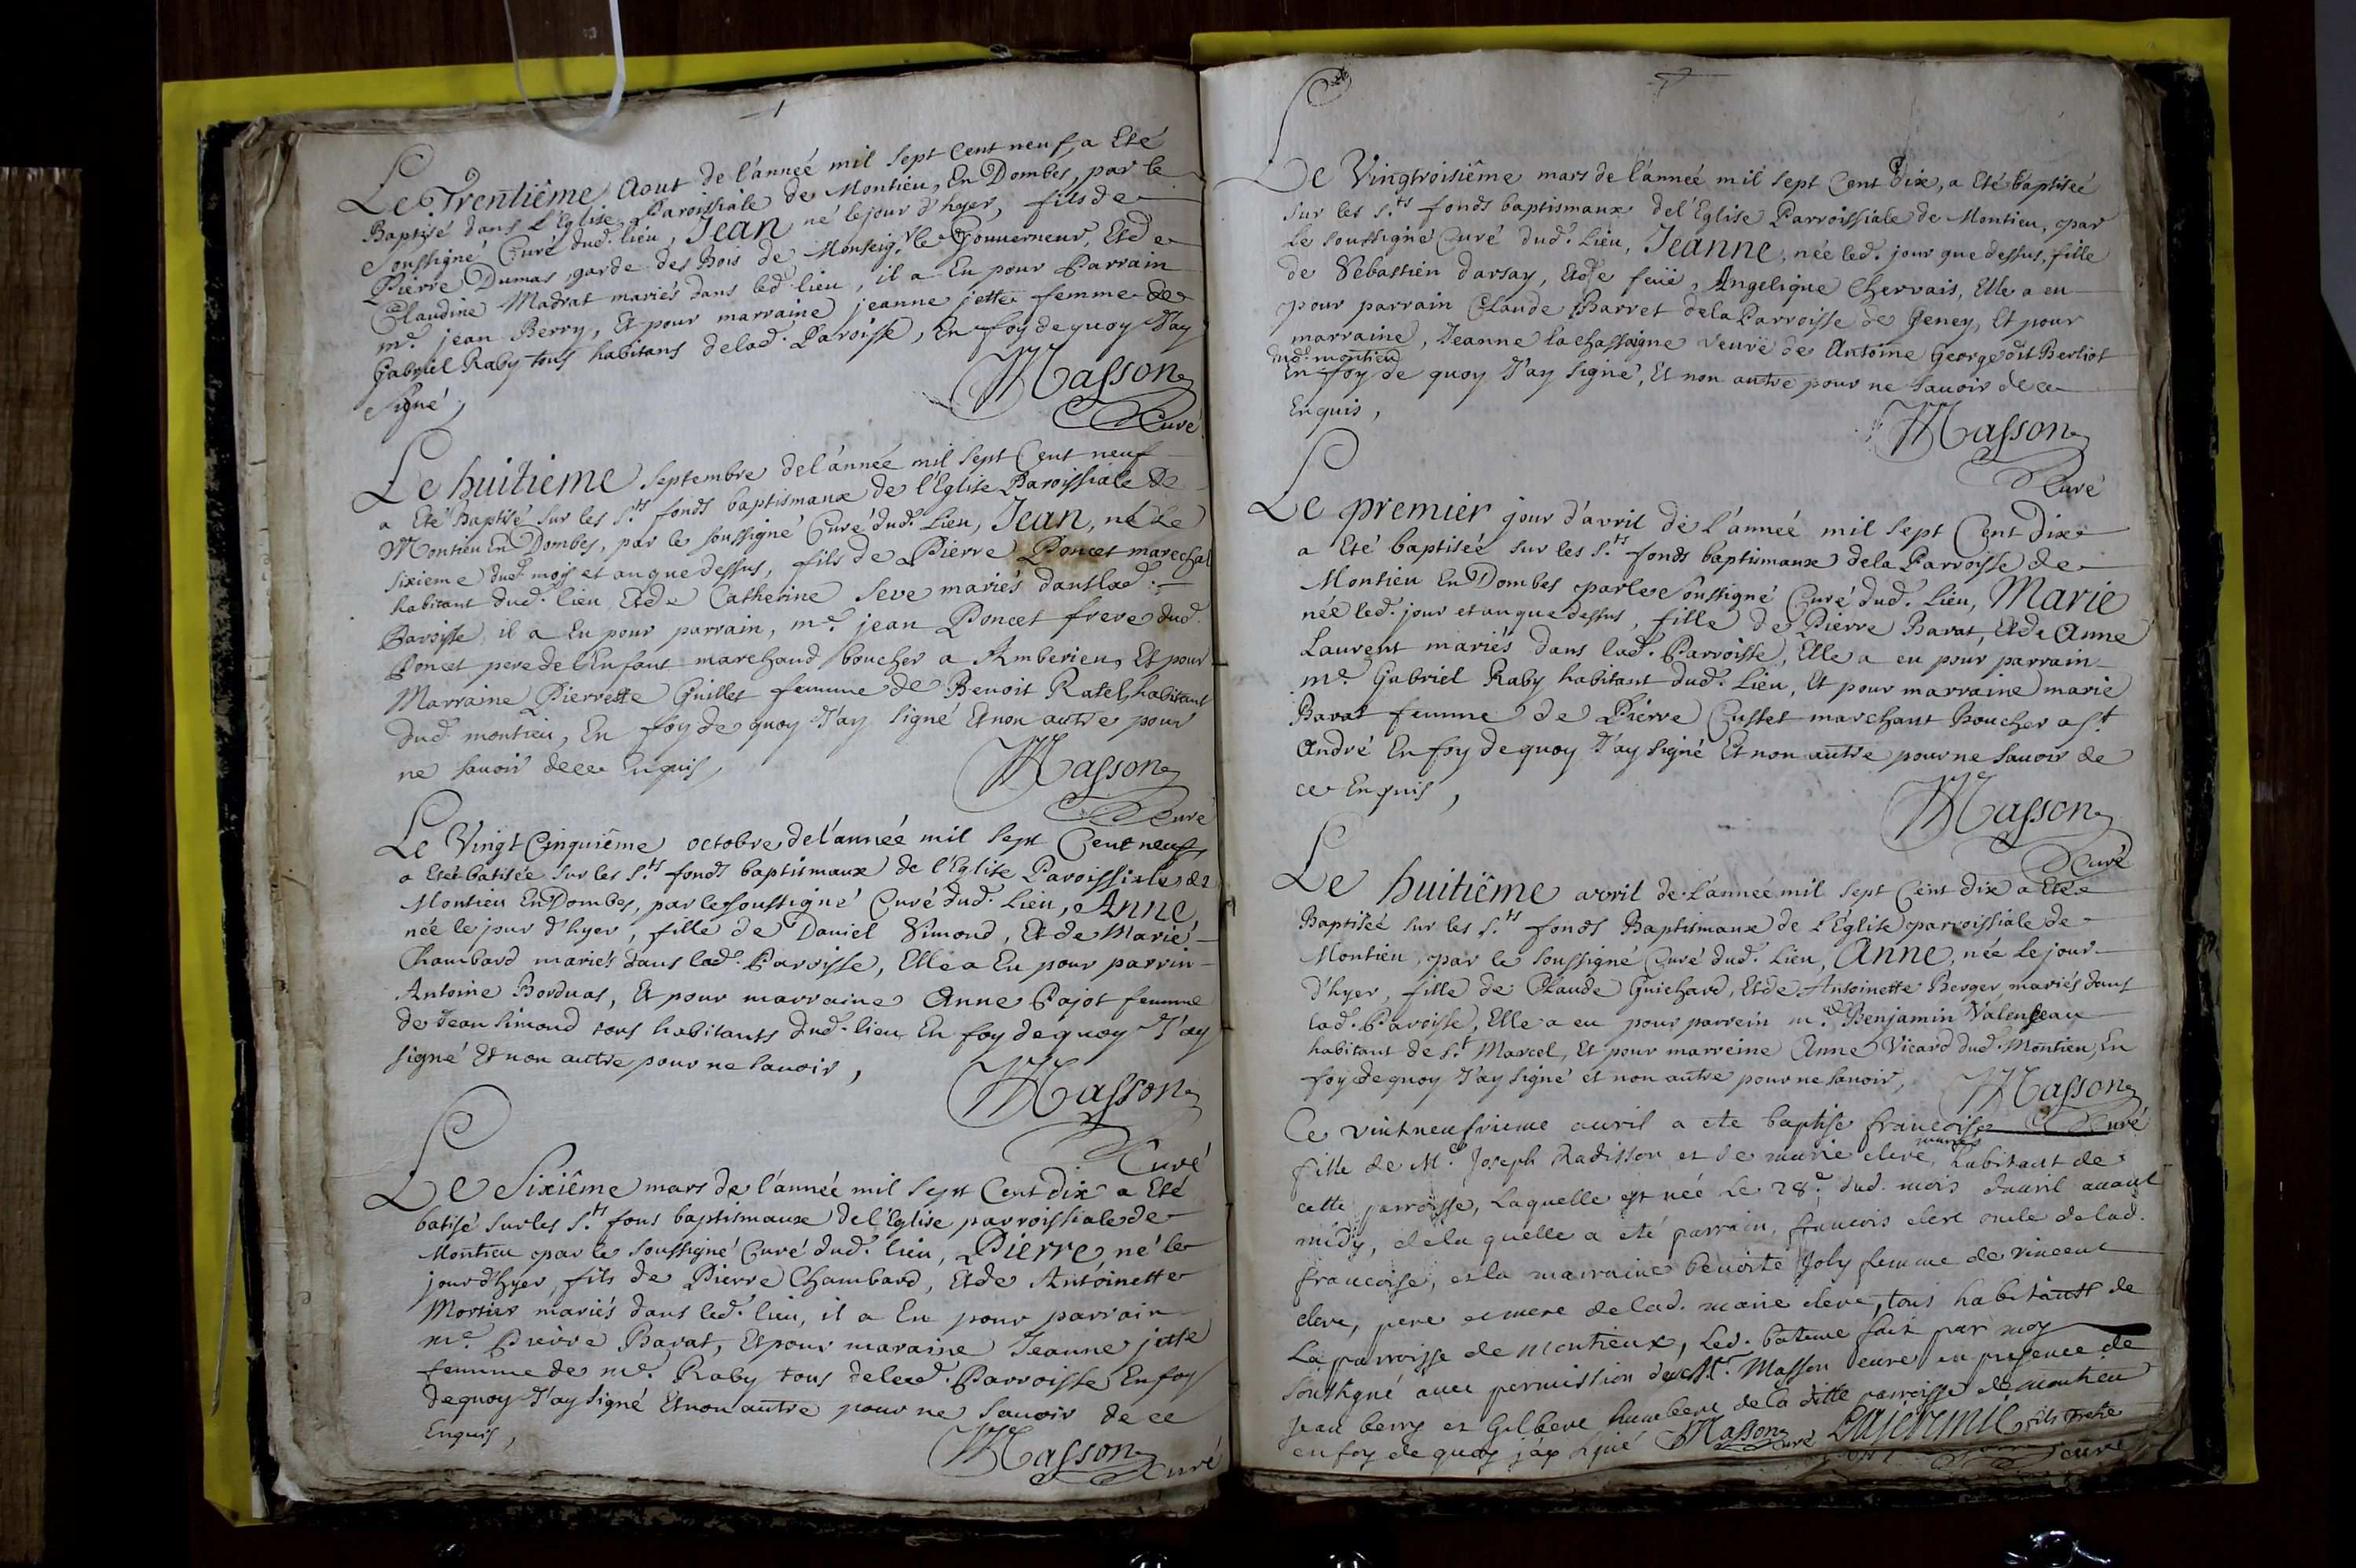 Le Trentiême Aout de l'année mil sept Cent neuf, a Eté
Baptisé dans l'Eglise Paroissiale de Montieu, En Dombes, par le
soussigné Curé dud. lieu, Jean né le jour d'hyer, fils de
Pierre Dumas garde des Bois de Monseig.r le Gouverneur, Et de
Claudine Madrat mariés dans led. lieu, il a Eu pour Parrain
m.e jean Berry, Et pour marraine jeanne jette femme de
Gabriel Raby tous habitans de lad. Paroisse, En foy de quoy J'ay
signé,
Masson
Curé
Le huitieme Septembre de l'année mil sept Cent neuf
a Eté Baptisé sur les S.ts fonds baptismaux de l'Eglise Paroissiale de
Montieu En Dombes, par le soussigné Curé dud. Lieu, Jean, né Le
sixieme dud. mois et an que dessus, fils de Pierre Poncet marechal
habitant dud. lieu Et de Catherine Seve mariés dans lad.
Paroisse, il a Eu pour parrain, m.e jean Poncet frere dud.
Poncet pere de l'Enfant marchand boucher a Amberieu, Et pour
Marraine Pierrette Guillet femme de Benoit Ratel, habitant
dud. montieu, En foy de quoy J'ay signé Et non autre pour
ne savoir de ce Enquis,
Masson
Curé
Le Vingt Cinquiême octobre de l'année mil sept Cent neuf,
a Eté batisée sur les S.ts fonds baptismaux de l'Eglise Paroissiale de
Montieu En Dombes, par le soussigné Curé dud. Lieu, Anne,
née le jour d'hyer, fille de Daniel Simond, Et de Marie
Chambard mariés dans lad. Paroisse, Elle a Eu pour parrin
Antoine Borduas, Et pour marraine Anne Pajot femme
de Jean Simond tous habitants dud. lieu En foy de quoy J'ay
signé Et non autre pour ne savoir,
Masson
Curé
Le Sixiême mars de l'année mil sept Cent dix a Eté
batisé sur les S.ts fons baptismaux de l'Eglise parroissiale de
Montieu par le soussigné Curé dud. lieu, Pierre, né le
jour d'hyer, fils de Pierre Chambard, Et de Antoinette
Mortier mariés dans led. lieu, il a Eu pour parrain
m.e Pierre Barat, Et pour maraine Jeanne jette
femme de m.e Raby tous de lad. Parroisse En foy
de quoy J'ay signé Et non autre pour ne savoir de ce
Enquis,
Masson
Curé
Le Vingtroisiême mars de l'année mil sept Cent Dix, a Eté baptisée
sur les S.ts fonds baptismaux de l'Eglise Parroissiale de Montieu, par
Le soussigné Curé dud. Lieu, Jeanne, née led. jour que dessus, fille
de Sebastien darsay, Et de feüe, Angelique Chervais, Elle a eu
pour parrain Claude Barret de la Parroisse de Geney, Et pour
marraine, Jeanne lachassaigne veuve de Antoine George dit Berliot
dud. montieu
En foy de quoy J'ay signé, Et non autre pour ne savoir de ce
Enquis,
Masson
Curé
Le premier jour d'avril de l'année mil sept Cent Dix
a Eté baptisée sur les S.ts fonds baptismaux de la Parroisse de
Montieu En Dombes par le soussigné Curé dud. Lieu, Marie
née led. jour et an que dessus, fille de Pierre Barat, Et de Anne
Laurent mariés dans lad. Parroisse, Elle a eu pour parrain
m.e Gabriel Raby habitant dud. Lieu, Et pour marraine marie
Barat femme de Pierre Custet marchant Boucher a St
André En foy de quoy J'ay signé Et non autre pour ne savoir de
ce Enquis,
Masson
Curé
Le huitiême avril de l'année mil sept Cent dix a Eté
Baptisée sur les S.ts fonds Baptismaux de l'Eglise parroissiale de
Montieu, par le soussigné Curé dud. Lieu, Anne, née Le jour
d'hyer, fille de Claude Guichard, Et de Antoinette Berger mariés dans
lad. Paroisse, Elle a eu pour parrein m.e Benjamin Valenseau
habitant de S.t Marcel, Et pour marreine Anne Vicard dud. Montieu, En
foy de quoy J'ay signé et non autre pour ne savoir,
Masson
Curé
Ce vintneufvieme avril a ete baptisé francoise
fille de M.e Joseph Radisson et de marie clere, mariés habitant de
cette parroisse, laquelle est née le 28.e dud. mois d'avril avant
midy, de la quelle a eté parrain, francois clere oncle de lad.
francoise, et la marraine benoite Joly femme de vincent
clere, pere et mere de lad. marie clere, tous habitants de
La parroisse de montieux, Led. bateme fait par moy
soussigné avec permission de M.r Masson curé en presence de
Jean berry et Gilbert humbert de la ditte parroisse de montieu
en foy de quoy jay signé Masson Curé